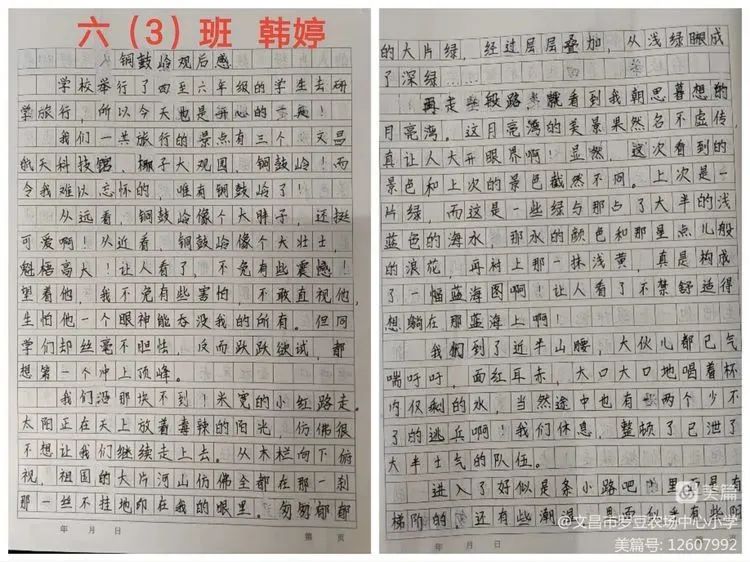 六（3）班 韩婷
铜鼓岭观后感
学校举行了四至六年级的学生去研
学旅行，所以今天也是开心的一天！
我们一共旅行的景点有三个，文昌
航天科技馆、椰子大观园、铜鼓岭！而
令我难以忘怀的，唯有铜鼓岭了！
从远看，铜鼓岭像个大胖子，还挺
可爱啊！从近看，铜鼓岭像个大壮士，
魁梧高大！让人看了，不免有些震憾！
望着他，我不免有些害怕，不敢直视他，
生怕他一个眼神能吞没我的所有。但同
学们却丝毫不胆怯，反而跃跃欲试，都
想第一个冲上顶峰。
我们沿那块不到1米宽的小红路走。
太阳正在天上放着毒辣的阳光，仿佛很
不想让我们继续走上去。从木栏向下俯
视，祖国的大片河山仿佛全都在那一刹
那一丝不挂地印在我的眼里。匆匆郁郁
年 月 日
第 页
的大片绿，经过层层叠加，从浅绿跟成
了深绿……
再走一段路，就看到我朝思暮想的
月亮湾。这月亮湾的美景果然名不虚传，
真让人大开眼界啊！显然，这次看到的
景色和上次的景色截然不同。上次是一
片绿，而这是一些绿与那占了大半的浅
蓝色的海水，那水的颜色和那星点儿般
的浪花，再衬上那一抹浅黄，真是构成
了一幅蓝海图啊！让人看了不禁舒适得
想躺在那蓝海上啊！
我们到了近半山腰，大伙儿都已气
喘吁吁，面红耳赤，大口大口地喝着杯
内仅剩的水，当然途中也有一两个少不
了的逃兵啊！我们休息，整顿了已泄了
大半士气的队伍。
进入了好似是条小路吧，里面是有
梯阶的，还有些潮湿，里面似乎有些阴
年 月 日
美篇
@文昌市罗豆农场中心小学
美篇号: 12607992